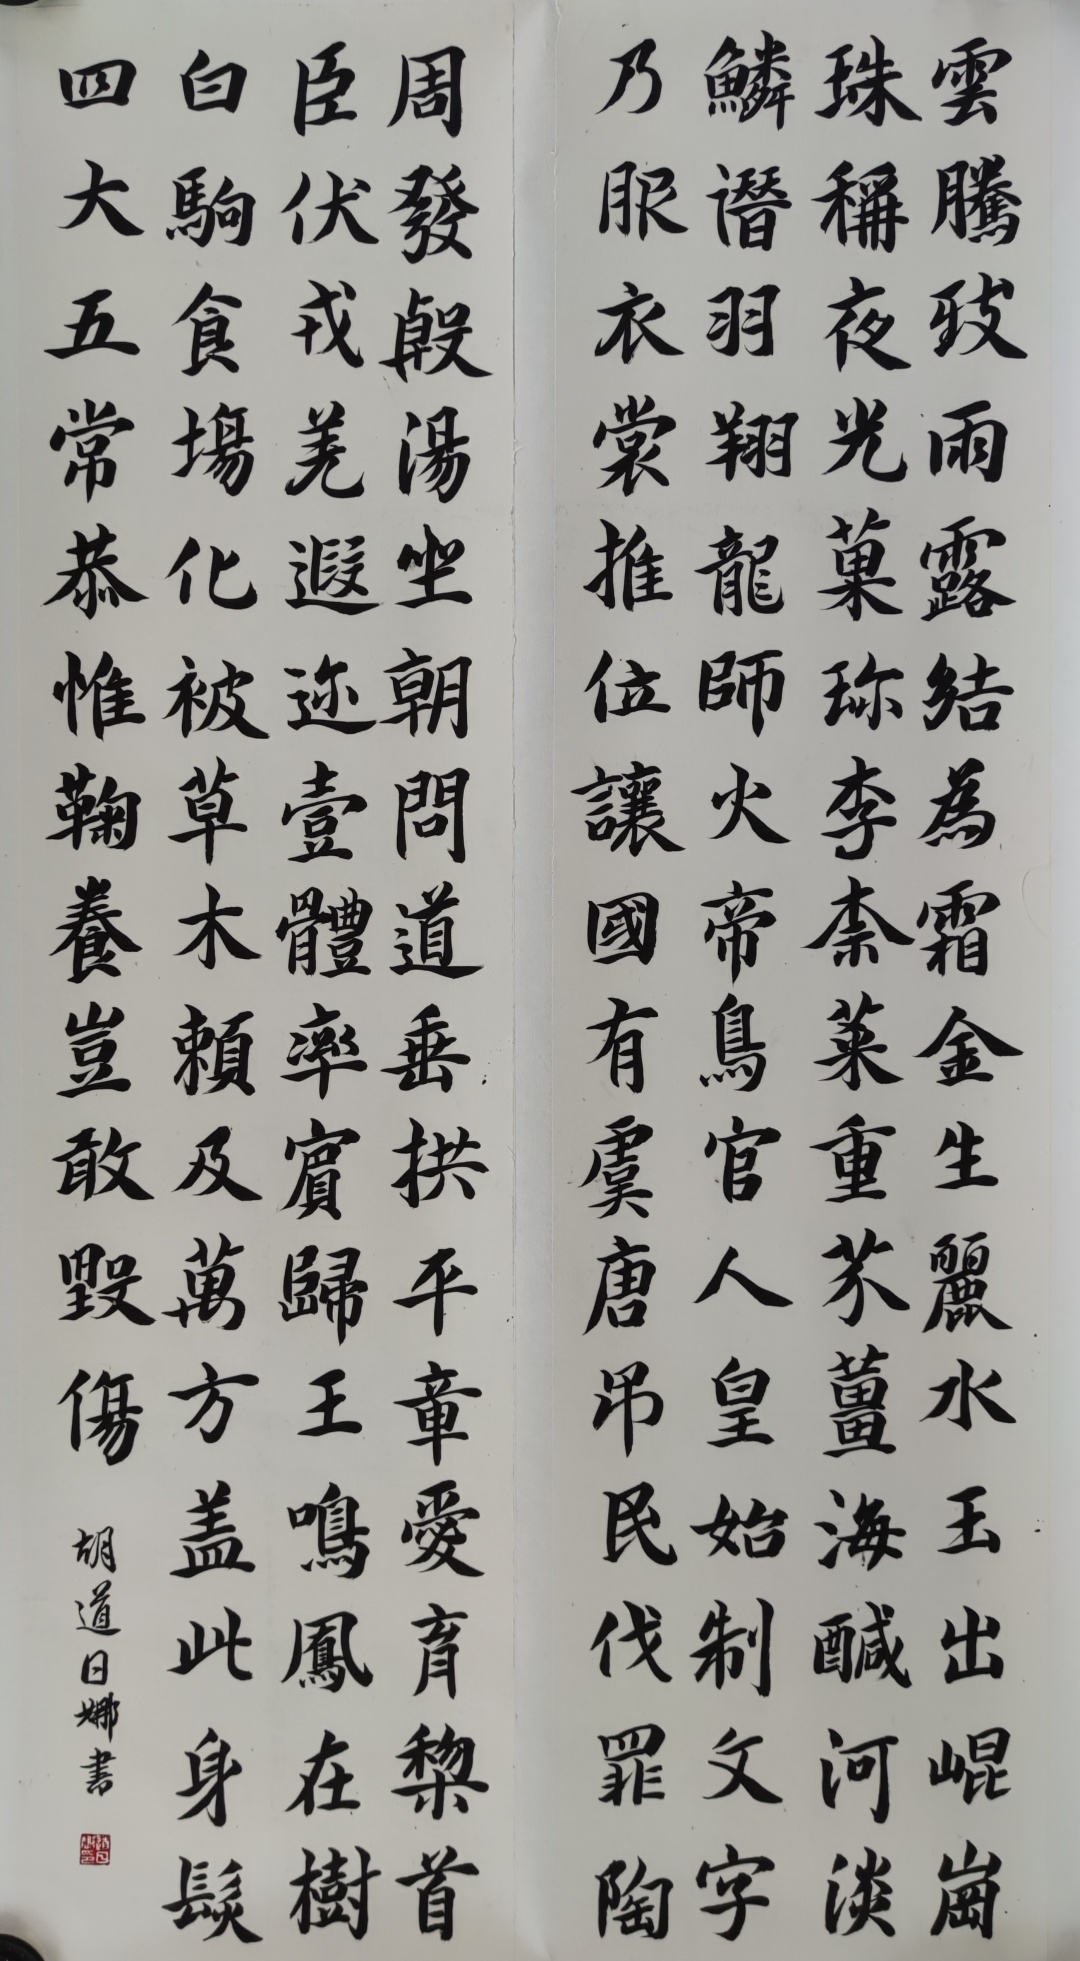 雲騰致雨露結為霜金生麗水玉出崐崗
珠稱夜光菓珎李柰菜重芥薑海醎河淡
鱗潛羽翔龍師火帝鳥官人皇始制文字
乃服衣裳推位讓國有虞唐弔民伐罪陶
周發殷湯坐朝問道垂拱平章愛育黎首
臣伏戎羌遐迩壹體率賓歸王鳴鳳在樹
白駒食場化被草木賴及萬方盖此身髮
四大五常恭惟鞠養豈敢毀傷
胡道日娜書